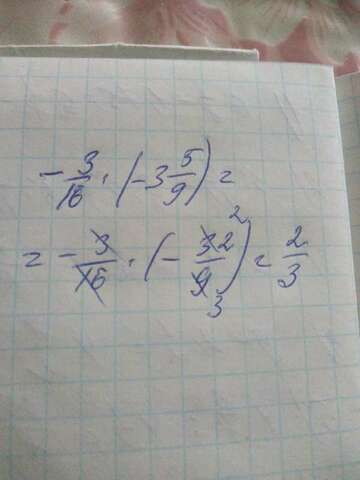 - 3/16 · (-3 5/9) =
= - 3/16 · (- 32/9) 2 3 = 2/3